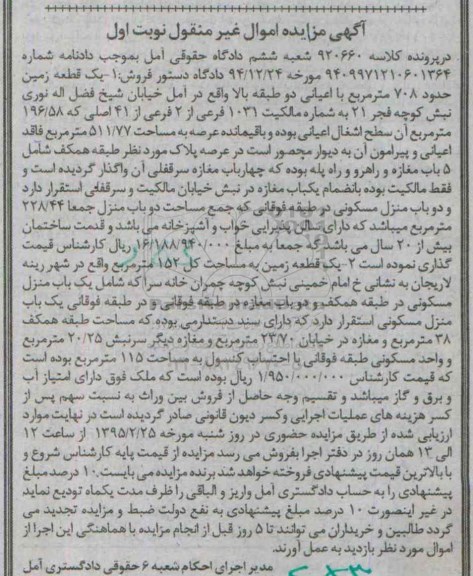 آگهی مزایده اموال غیر منقول نوبت اول
درپرونده کلاسه ۹۲۰۶۶۰ شعبه ششم دادگاه حقوقی آمل بموجب دادنامه شماره
۹۴۰۹۹۷۱۲۱۰۶۰۱۳۶۴ مورخه ۹۴/۱۲/۲۴ دادگاه دستور فروش:۱-یک قطعه زمین
حدود ۷۰۸ مترمربع با اعیانی دو طبقه بالا واقع در آمل خیابان شیخ فضل اله نوری
نبش کوچه فجر ۲۱ به شماره مالکیت ۱۰۳۱ فرعی از ۲ فرعی از ۴۱ اصلی که ۱۹۶/۵۸
مترمربع آن سطح اشغال اعیانی بوده و باقیمانده عرصه به مساحت ۵۱۱/۷۷ مترمربع فاقد
اعیانی و پیرامون آن به دیوار محصور است در عرصه پلاک مورد نظر طبقه همکف شامل
۵ باب مغازه و راهرو و راه پله بوده که چهارباب مغازه سرقفلی آن واگذار گردیده است و
فقط مالکیت بوده بانضمام یکباب مغازه در نبش خیابان مالکیت و سرقفلی استقرار دارد
و دو باب منزل مسکونی در طبقه فوقانی که جمع مساحت دو باب منزل جمعا ۲۲۸/۴۴
مترمربع میباشد که دارای سالن پذیرایی خواب و آشپزخانه می باشد و قدمت ساختمان
بیش از ۲۰ سال می باشد که جمعا به مبلغ ۱۶/۱۸۸/۹۴۰/۰۰۰ ریال کارشناس قیمت
گذاری نموده است ۲-یک قطعه زمین به مساحت کل ۱۵۲ مترمربع واقع در شهر رینه
لاریجان به نشانی خ امام خمینی نبش کوچه چمران خانه سرا که شامل یک باب منزل
مسکونی در طبقه همکف و دو باب مغازه در طبقه فوقانی و در طبقه فوقانی یک باب
منزل مسکونی استقرار دارد که دارای سند دستدارمی بوده که مساحت طبقه همکف
۳۸ مترمربع و مغازه در خیابان ۲۳/۷۰ مترمربع و مغازه دیگر سرنبش ۲۰/۲۵ مترمربع
و واحد مسکونی طبقه فوقانی با احتساب کنسول به مساحت ۱۱۵ مترمربع بوده است
که قیمت کارشناس ۱/۹۵۰/۰۰۰/۰۰۰ ریال بوده است که ملک فوق دارای امتیاز آب
و برق و گاز میباشد و تقسیم وجه حاصل از فروش بین وراث به نسبت سهم پس از
کسر هزینه های عملیات اجرایی وکسر دیون قانونی صادر گردیده است در نهایت موارد
ارزیابی شده از طریق مزایده حضوری در روز شنبه مورخه ۱۳۹۵/۲/۲۵ از ساعت ۱۲
الی ۱۳ همان روز در دفتر اجرا بفروش می رسد مزایده از قیمت پایه کارشناس شروع و
با بالاترین قیمت پیشنهادی فروخته خواهد شد برنده مزایده می بایست.۱۰ درصد مبلغ
پیشنهادی را به حساب دادگستری آمل واریز و الباقی را ظرف مدت یکماه تودیع نماید
در غیر اینصورت ۱۰ درصد مبلغ پیشنهادی به نفع دولت ضبط و مزایده تجدید می
گردد طالبین و خریداران می توانند تا ۵ روز قبل از انجام مزایده با هماهنگی این اجرا از
اموال مورد نظر بازدید به عمل آورند.
مدیر اجرای احکام شعبه ۶ حقوقی دادگستری آمل